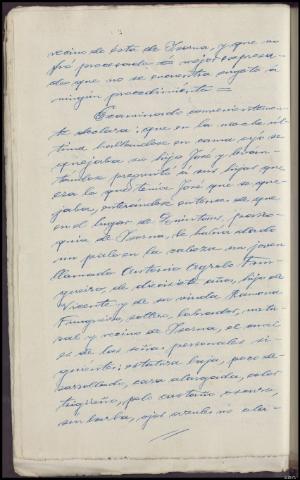 vecino de esta de Tserna, y que no
fué procesado tá mejor expresa-
do que no se encuentra sugeto á
ningún procedimiento =
Examinado convenientemen-
te declara: que en la noche úl-
tima hallandose en cama oyó se
quejaba su hijo José y levan-
tandose preguntó á sus hijas que
era lo que tenia José que se que-
jaba, enterandose entonces de que
en el lugar de Quintans, parro-
quia de Tserna, le habia dado
un palo en la cabeza un joven
llamado Antonio Agrelo Frun-
gueiro, de diecisiete años, hijo de
Vicente y de su viuda Ramona
Frungueiro, soltero, labrador, natu-
ral y vecino de Tserna, el cual
es de las señas personales si-
guientes; estatura baja, poco de-
sarrollado, cara alargada, color
trigueño, pelo castaño oscuro,
sin barba, ojos azules no ala-